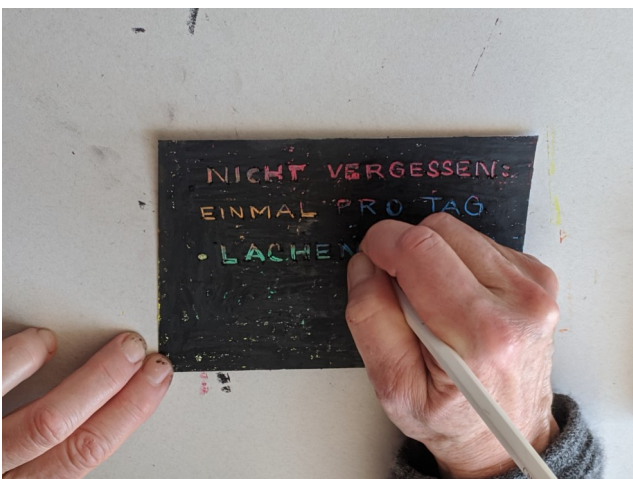 NICHT VERGESSEN:
EINMAL PRO TAG
• LACHEN